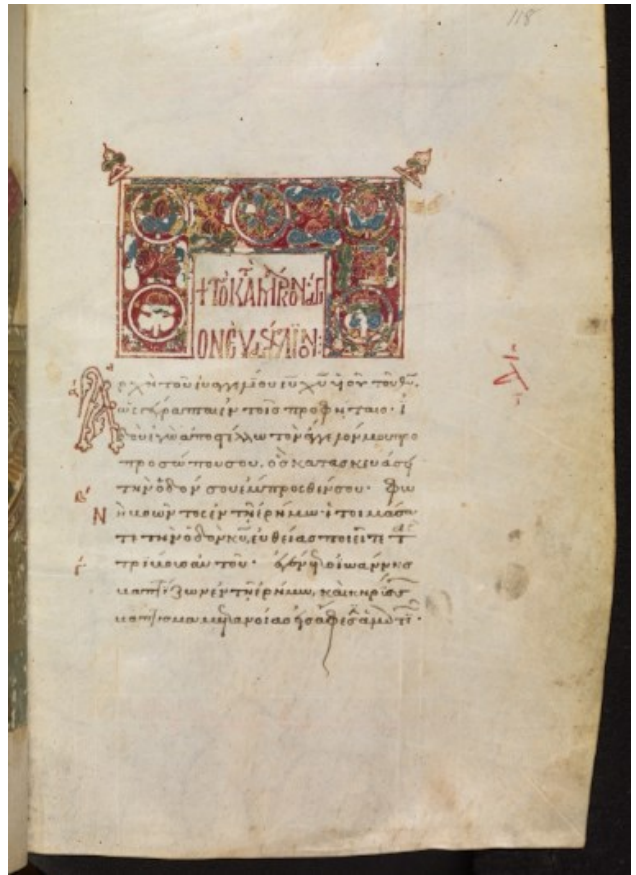 118
+ ΤΟ ΚΑΤΑ ΜΑΡΚΟΝ ΑΓΙ
ΟΝ ΕΥΑΓΓΕΛΙΟΝ:
Αρχὴ τοῦ εὐαγγελίου ιυ χυ υἱοῦ τοῦ θυ.
ὡς γέγραπται ἐν τοῖς προφήταις· ἰ
δοὺ ἐγὼ ἀποστέλλω τὸν ἄγγελόν μου πρὸ
προσώπου σου, ὃς κατασκευάσει
τὴν ὁδόν σου ἔμπροσθέν σου· φω
νὴ βοῶντος ἐν τῇ ἐρήμω, ἑτοιμάσα
τε τὴν ὁδὸν κυ, εὐθείας ποιεῖτε τὰς
τρίβους αὐτοῦ· ἐγένετο ἰωάννης
βαπτίζων ἐν τῇ ἐρήμω, καὶ κηρύσσων
βάπτισμα μετανοίας εἰς ἄφεσιν ἁμαρτιῶν·